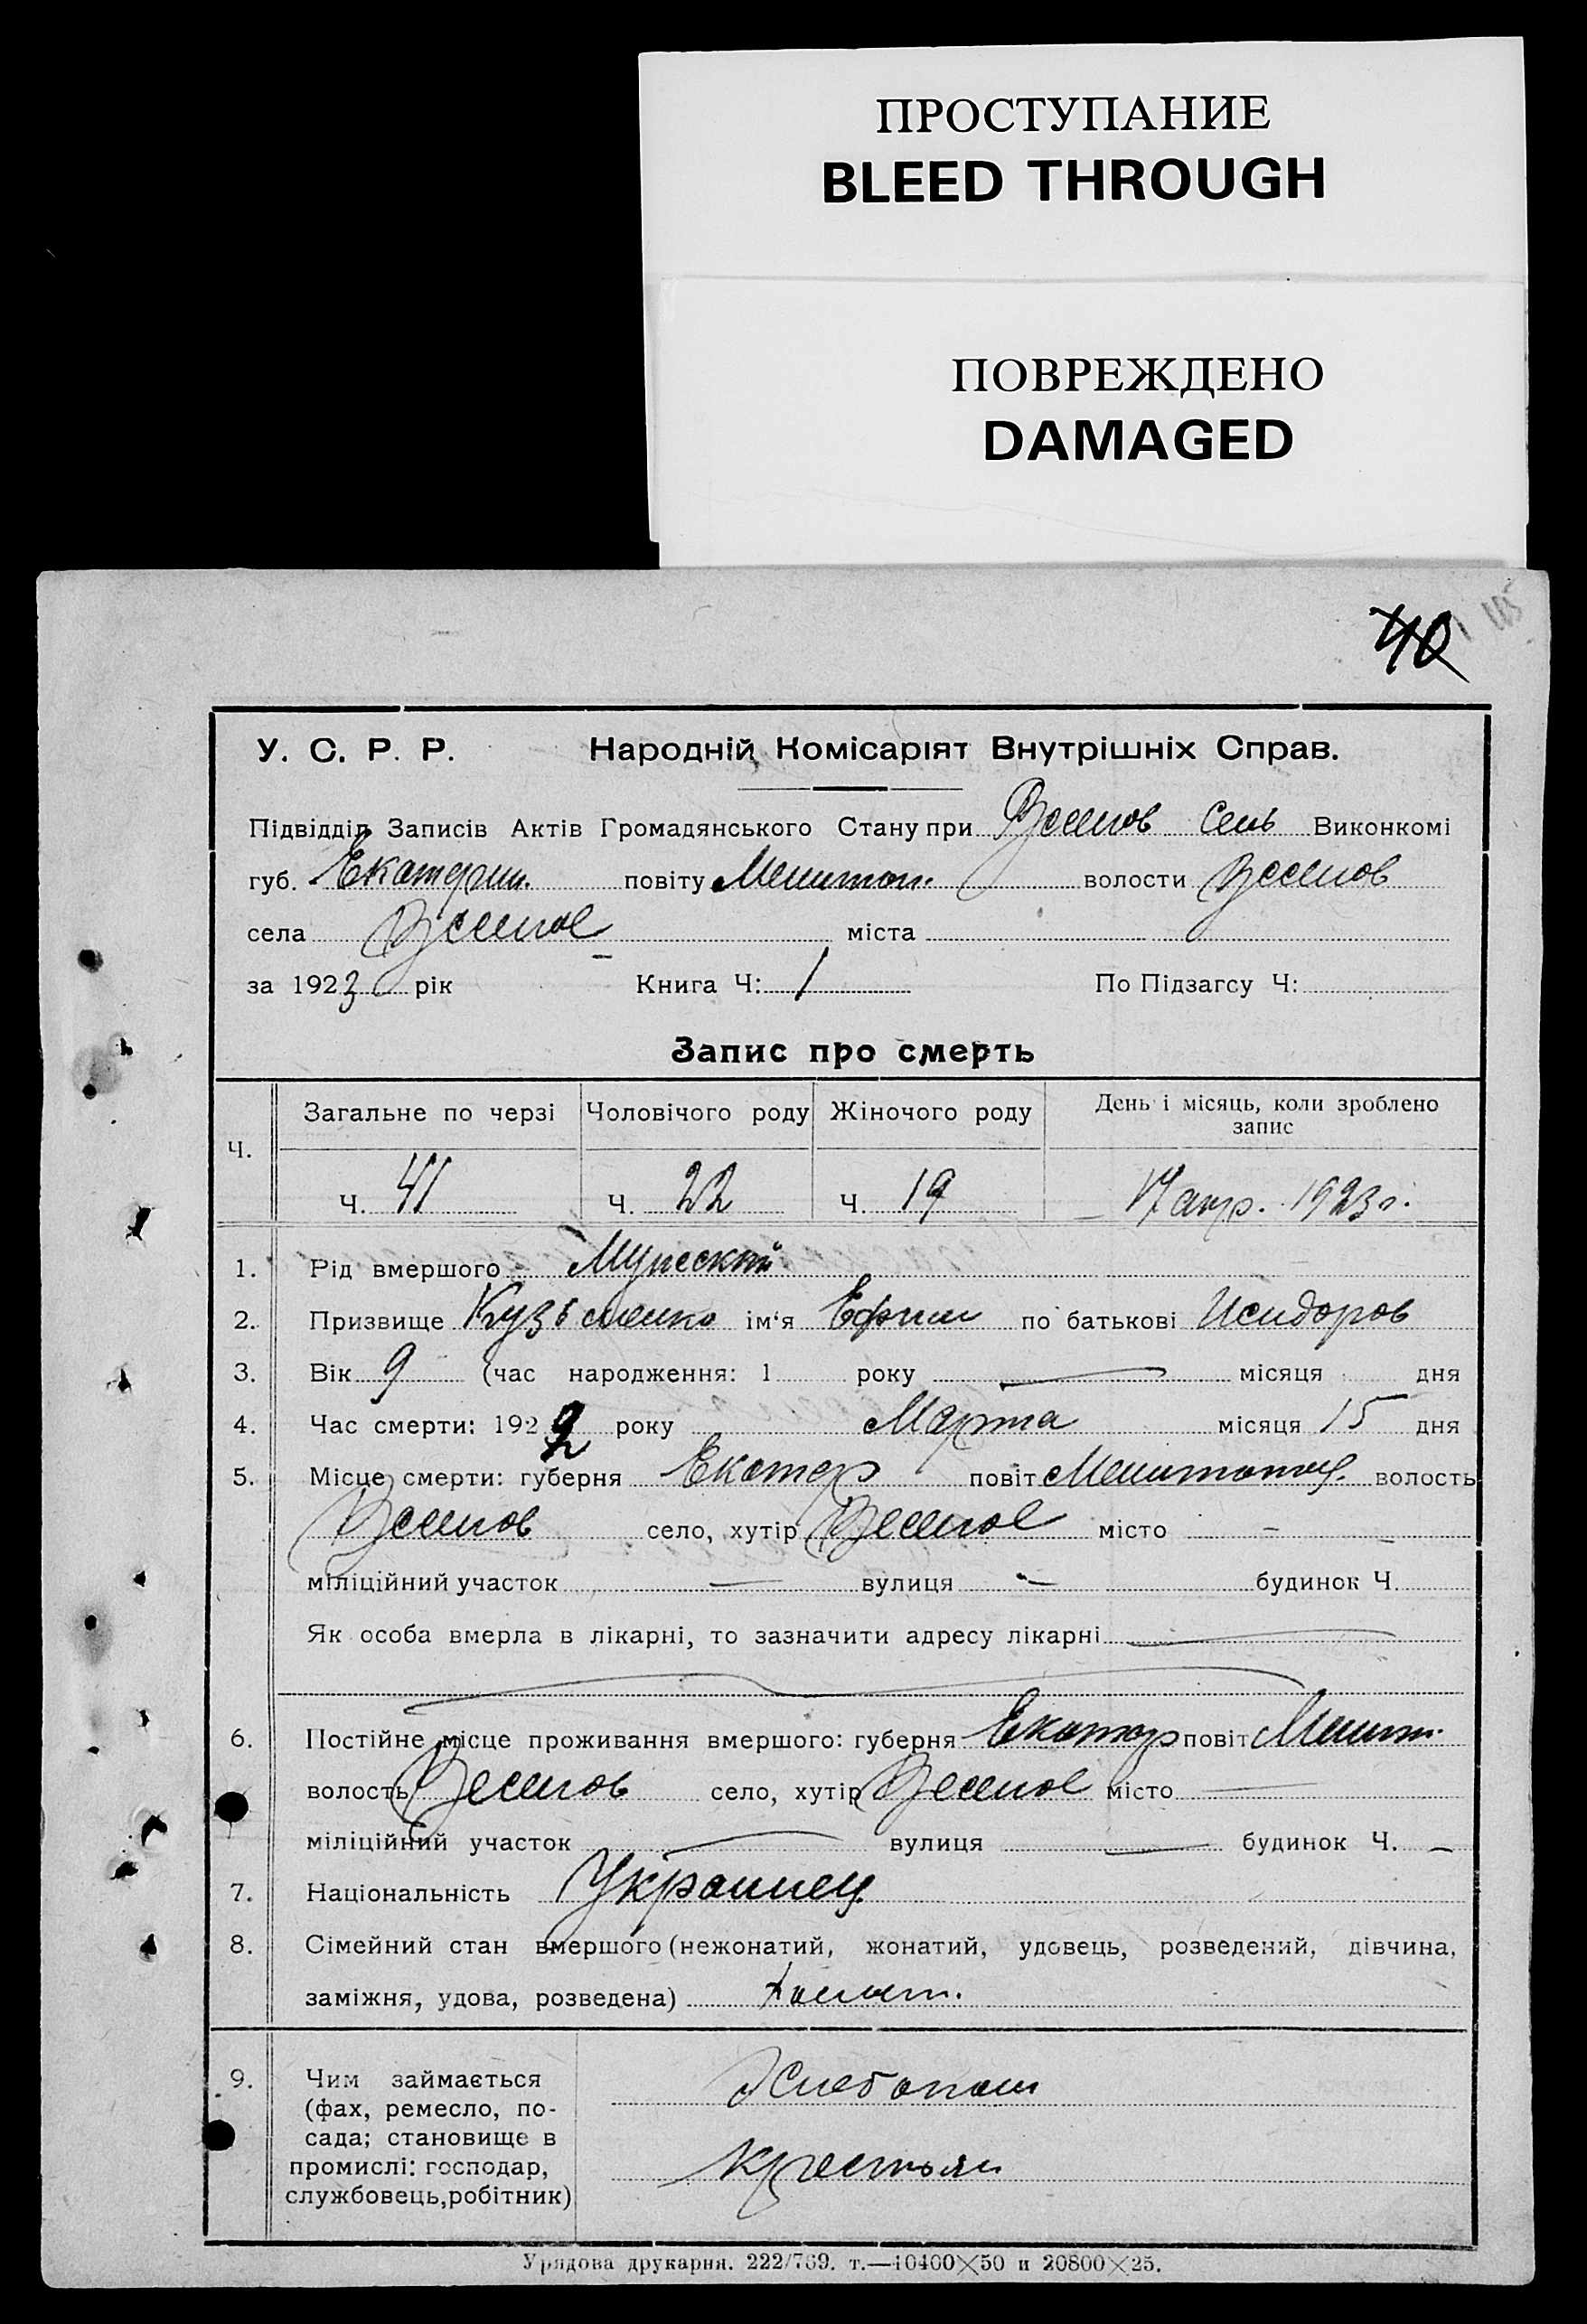 ПРОСТУПАНИЕ
BLEED THROUGH
ПОВРЕЖДЕНО
DAMAGED
40
У. С. Р. Р. Народній Комісаріят Внутрішніх Справ.
Підвідділ Записів Актів Громадянського Стану при Веселов Сель Виконкомі
губ. Екатерин. повіту Мелитоп. волости Веселов
села Веселое міста
за 1923 рік Книга Ч: 1 По Підзагсу Ч:
Запис про смерть
Ч. Загальне по черзі Чоловічого роду Жіночого роду День і місяць, коли зроблено
запис
Ч. 41 Ч. 22 Ч. 19 17 апр. 1923 г.
1. Рід вмершого Мужеский
2. Призвище Кузьменко ім'я Ефим по батькові Исидоров
3. Вік 9 (час народження: 1 року — місяця дня
4. Час смерти: 192 року Марта місяця 15 дня
5. Місце смерти: губерня Екатер повіт Мелитопол. волость
Веселов село, хутір Веселое місто –
міліційний участок — вулиця — будинок Ч.
Як особа вмерла в лікарні, то зазначити адресу лікарні —
6. Постійне місце проживання вмершого: губерня Екатер повіт Мелит.
волость Веселов село, хутір Веселое місто —
міліційний участок — вулиця — будинок Ч. –
7. Національність Украинец
8. Сімейний стан вмершого (нежонатий, жонатий, удовець, розведений, дівчина,
заміжня, удова, розведена) холост.
9. Чим займається
(фах, ремесло, по-
сада; становище в
промислі: господар,
службовець, робітник)
Хлебопаш
крестьян
Урядова друкарня. 222/769. т.—10400×50 и 20800×25.